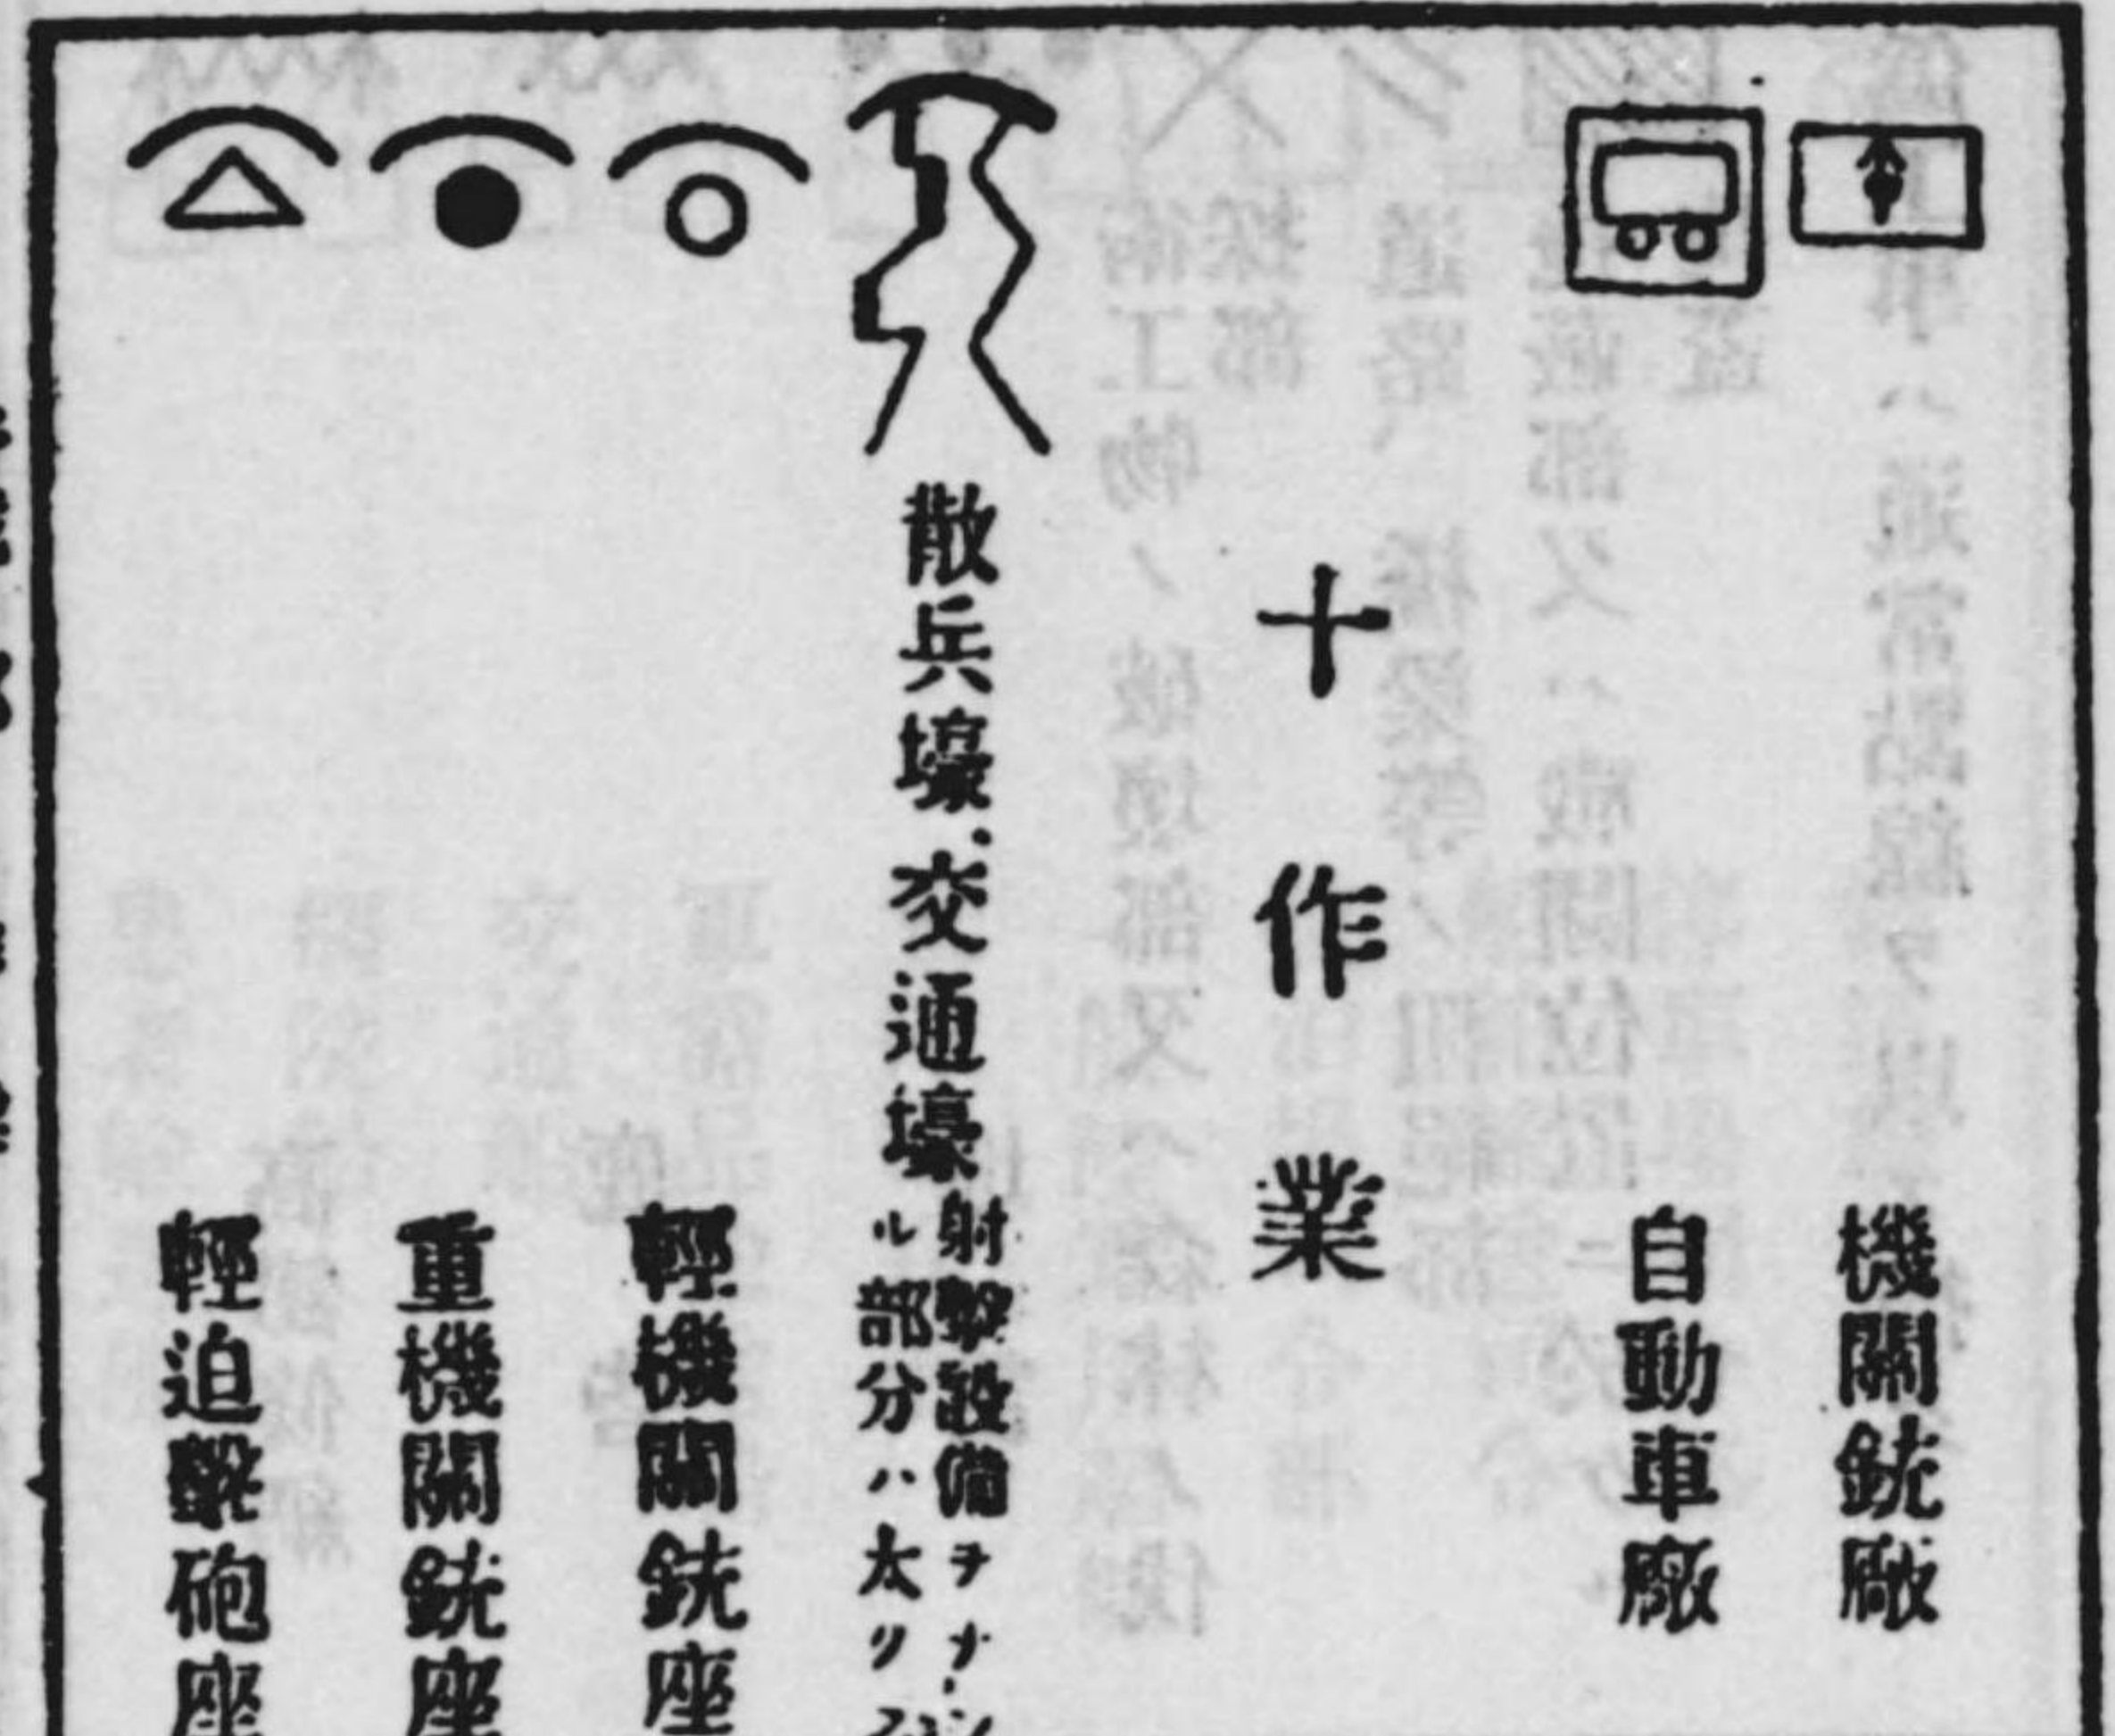 機關銃廠
自動車廠
十作業
散兵壕、交通壕
射擊設備ヲナシ
ル部分ハ太リ
輕機關銃座
重機關銃座
輕迫擊砲座